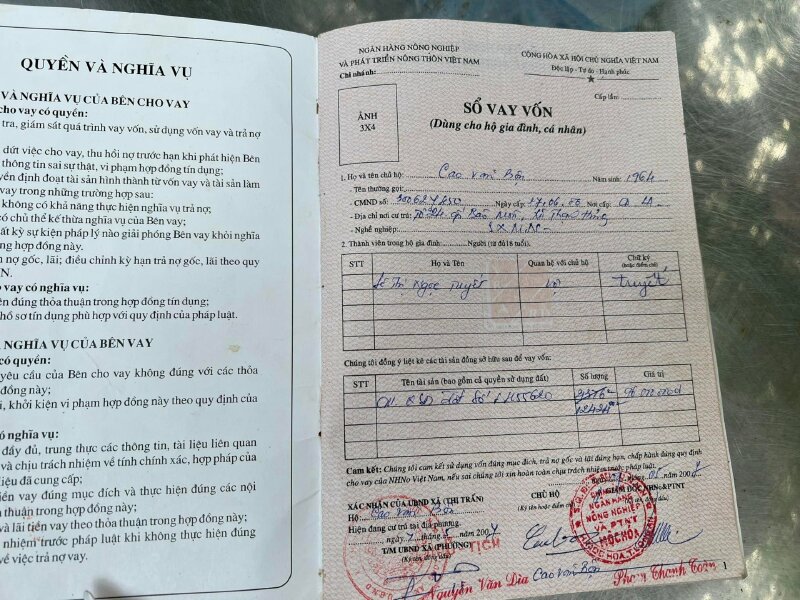 QUYỀN VÀ NGHĨA VỤ
VÀ NGHĨA VỤ CỦA BÊN CHO VAY
cho vay có quyền:
tra, giám sát quá trình vay vốn, sử dụng vốn vay và trả nợ
dứt việc cho vay, thu hồi nợ trước hạn khi phát hiện Bên
thông tin sai sự thật, vi phạm hợp đồng tín dụng;
yển định đoạt tài sản hình thành từ vốn vay và tài sản làm
vay trong những trường hợp sau:
không có khả năng thực hiện nghĩa vụ trả nợ;
có chủ thể kế thừa nghĩa vụ của Bên vay;
ất kỳ sự kiện pháp lý nào giải phóng Bên vay khỏi nghĩa
ng hợp đồng này.
n nợ gốc, lãi; điều chỉnh kỳ hạn trả nợ gốc, lãi theo quy
N.
o vay có nghĩa vụ:
ện đúng thỏa thuận trong hợp đồng tín dụng;
hồ sơ tín dụng phù hợp với quy định của pháp luật.
À NGHĨA VỤ CỦA BÊN VAY
có quyền:
yêu cầu của Bên cho vay không đúng với các thỏa
đồng này;
i, khởi kiện vi phạm hợp đồng này theo quy định của
có nghĩa vụ:
đầy đủ, trung thực các thông tin, tài liệu liên quan
và chịu trách nhiệm về tính chính xác, hợp pháp của
liệu đã cung cấp;
tiền vay đúng mục đích và thực hiện đúng các nội
n trong hợp đồng này;
và lãi tiền vay theo thỏa thuận trong hợp đồng này;
nhiệm trước pháp luật khi không thực hiện đúng
về việc trả nợ vay.
NGÂN HÀNG NÔNG NGHIỆP
VÀ PHÁT TRIỂN NÔNG THÔN VIỆT NAM
Chi nhánh:
CỘNG HÒA XÃ HỘI CHỦ NGHĨA VIỆT NAM
Độc lập - Tự do - Hạnh phúc
Cấp lần:
ẢNH
3X4
SỔ VAY VỐN
(Dùng cho hộ gia đình, cá nhân)
1. Họ và tên chủ hộ: Cao Văn Bên Năm sinh: 1964
- Tên thường gọi:
- CMND số: Ngày cấp: 17.06. Nơi cấp: CA LA
- Địa chỉ nơi cư trú:
- Nghề nghiệp: SXNN
2. Thành viên trong hộ gia đình: Người (từ đủ 18 tuổi).
STT Họ và Tên Quan hệ với chủ hộ Chữ ký (hoặc điểm chỉ)
Lê Thị Ngọc Tuyết Vợ Tuyết
Chúng tôi đồng ý liệt kê các tài sản đồng sở hữu sau để vay vốn:
STT Tên tài sản (bao gồm cả quyền sử dụng đất) Số lượng Giá trị
Cam kết: Chúng tôi cam kết sử dụng vốn đúng mục đích, trả nợ gốc và lãi đúng hạn, chấp hành đúng quy định
cho vay của NHNo Việt Nam, nếu sai chúng tôi xin hoàn toàn chịu trách nhiệm trước pháp luật.
XÁC NHẬN CỦA UBND XÃ (THỊ TRẤN)
Hộ: Cao Văn Bên
Hiện đang cư trú tại địa phương.
T/M UBND XÃ (PHƯỜNG)
(Ký tên, đóng dấu)
CHỦ HỘ
(Ký tên hoặc điểm chỉ)
GIÁM ĐỐC NHNo&PTNT
CHI NHÁNH
NGÂN HÀNG
NÔNG NGHIỆP
VÀ PTNT
MỘC HÓA
TỊCH
Nguyễn Văn Dìa
Cao Văn Bên
Phạm Thanh Toàn
1